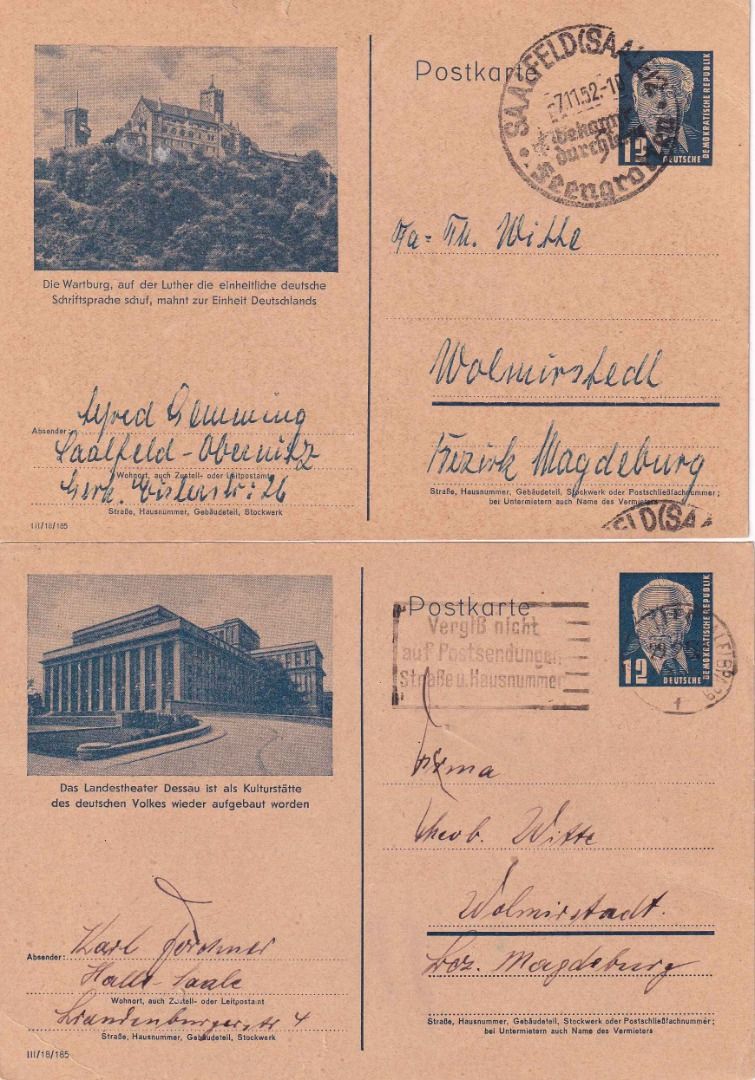 Postkarte
SAALFELD(SAALE)
7.11.52-
Bekannt
durch
Feengrotten
12
DEUTSCHE
DEMOKRATISCHE REPUBLIK
Die Wartburg, auf der Luther die einheitliche deutsche
Schriftsprache schuf, mahnt zur Einheit Deutschlands
Fa. Th. Witte
Wolmirstedt
Bezirk Magdeburg
Absender:
Alfred Gemming
Saalfeld-Obernitz
Wohnort, auch Zustell- oder Leitpostamt
26
Straße, Hausnummer, Gebäudeteil, Stockwerk
Straße, Hausnummer, Gebäudeteil, Stockwerk oder Postschließfachnummer;
bei Untermietern auch Name des Vermieters
III/18/185
FELD(SAA
Postkarte
Vergiß nicht
auf Postsendungen
Straße u. Hausnummer
12
DEUTSCHE
DEMOKRATISCHE REPUBLIK
f
Das Landestheater Dessau ist als Kulturstätte
des deutschen Volkes wieder aufgebaut worden
Firma
Theob. Witte
Wolmirstadt.
Bez. Magdeburg
Absender:
Karl
Halle-Saale
Wohnort, auch Zustell- oder Leitpostamt
Brandenburgerstr 4
Straße, Hausnummer, Gebäudeteil, Stockwerk
Straße, Hausnummer, Gebäudeteil, Stockwerk oder Postschließfachnummer;
bei Untermietern auch Name des Vermieters
III/18/185